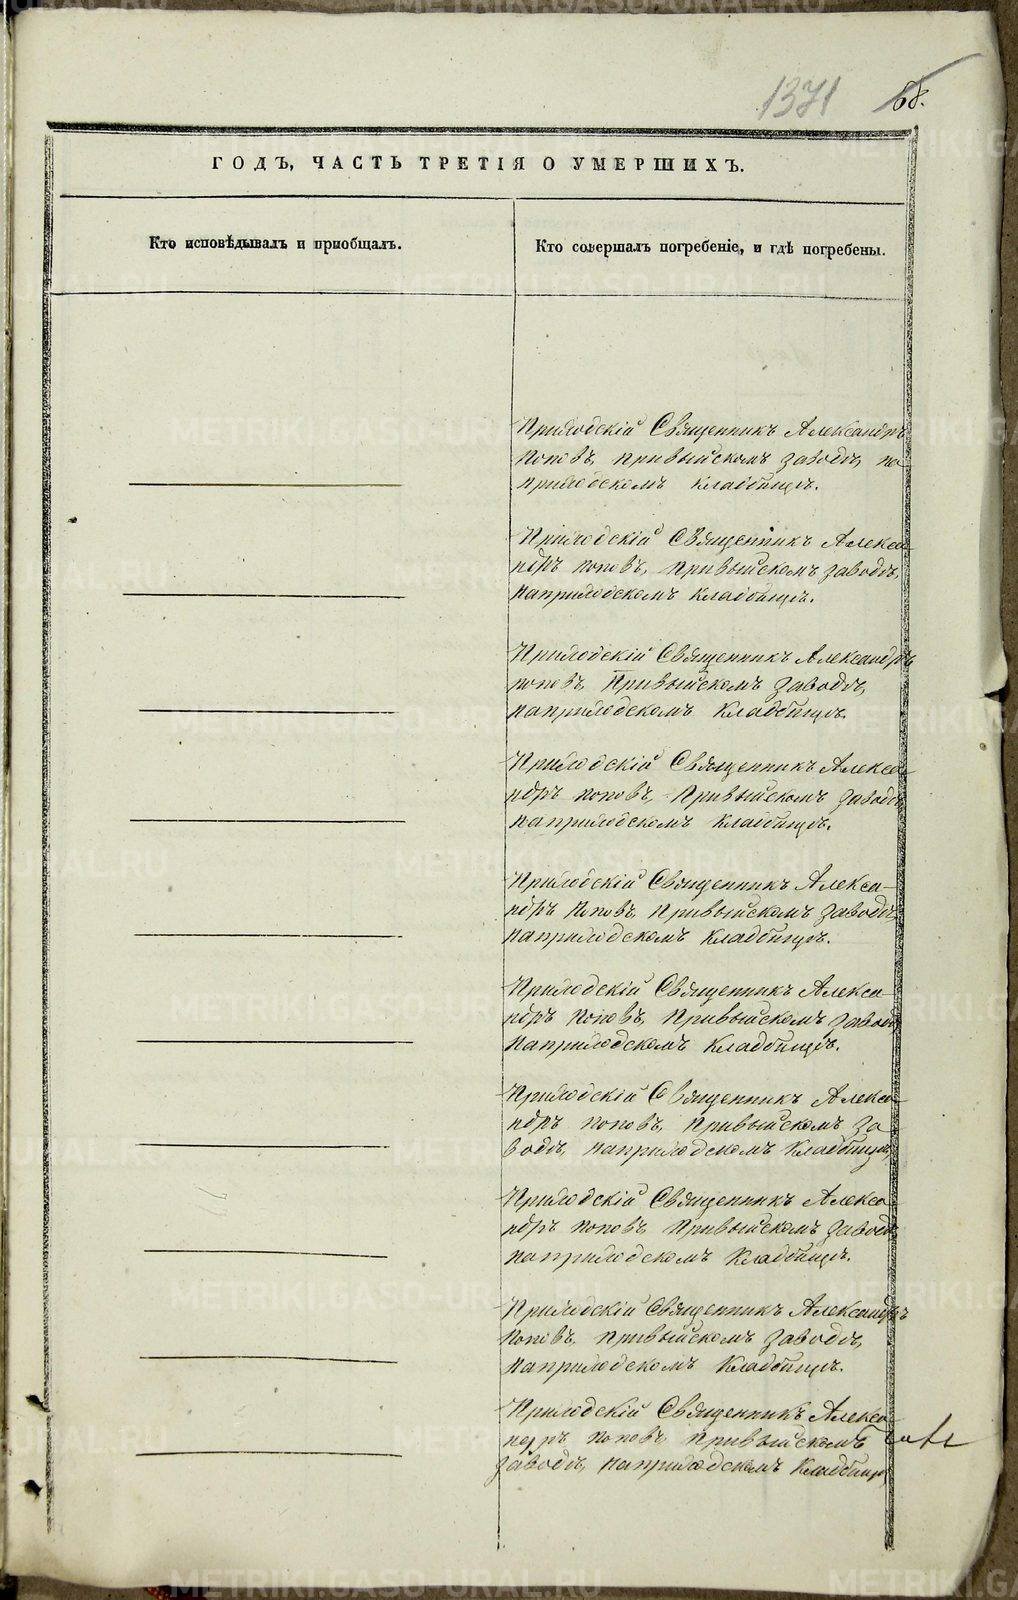 1371 68.
ГОДЪ, ЧАСТЬ ТРЕТІЯ О УМЕРШИХЪ.
Кто исповѣдывалъ и пріобщалъ.
Кто совершалъ погребеніе, и гдѣ погребены.
Приходскій Священникъ Александръ
Поповъ, привыйскомъ заводѣ, на
приходскомъ кладбищѣ.
Приходскій Священникъ Алекса-
ндръ поповъ, привыйскомъ заводѣ,
наприходскомъ кладбищѣ.
Приходскій Священникъ Александръ
поповъ, Привыйскомъ заводѣ,
наприходскомъ кладбищѣ.
Приходскій Священникъ Алекса-
ндръ поповъ, Привыйскомъ заводѣ,
наприходскомъ кладбищѣ.
Приходскій Священникъ Алекса-
ндръ Поповъ, Привыйскомъ заводѣ,
наприходскомъ кладбищѣ.
Приходскій Священникъ Алекса-
ндръ Поповъ, Привыйскомъ заводѣ,
наприходскомъ кладбищѣ.
Приходскій Священникъ Алекса-
ндръ поповъ, Привыйскомъ за
водѣ, наприходскомъ кладбищѣ,
Приходскій Священникъ Алекса-
ндръ поповъ, Привыйскомъ заводѣ,
наприходскомъ кладбищѣ.
Приходскій Священникъ Александръ
Поповъ, привыйскомъ заводѣ,
наприходскомъ кладбищѣ.
Приходскій Священникъ Алекса-
ндръ поповъ, Привыйскомъ
заводѣ, наприходскомъ кладбищѣ,
METRIKI.GASO-URAL.RU